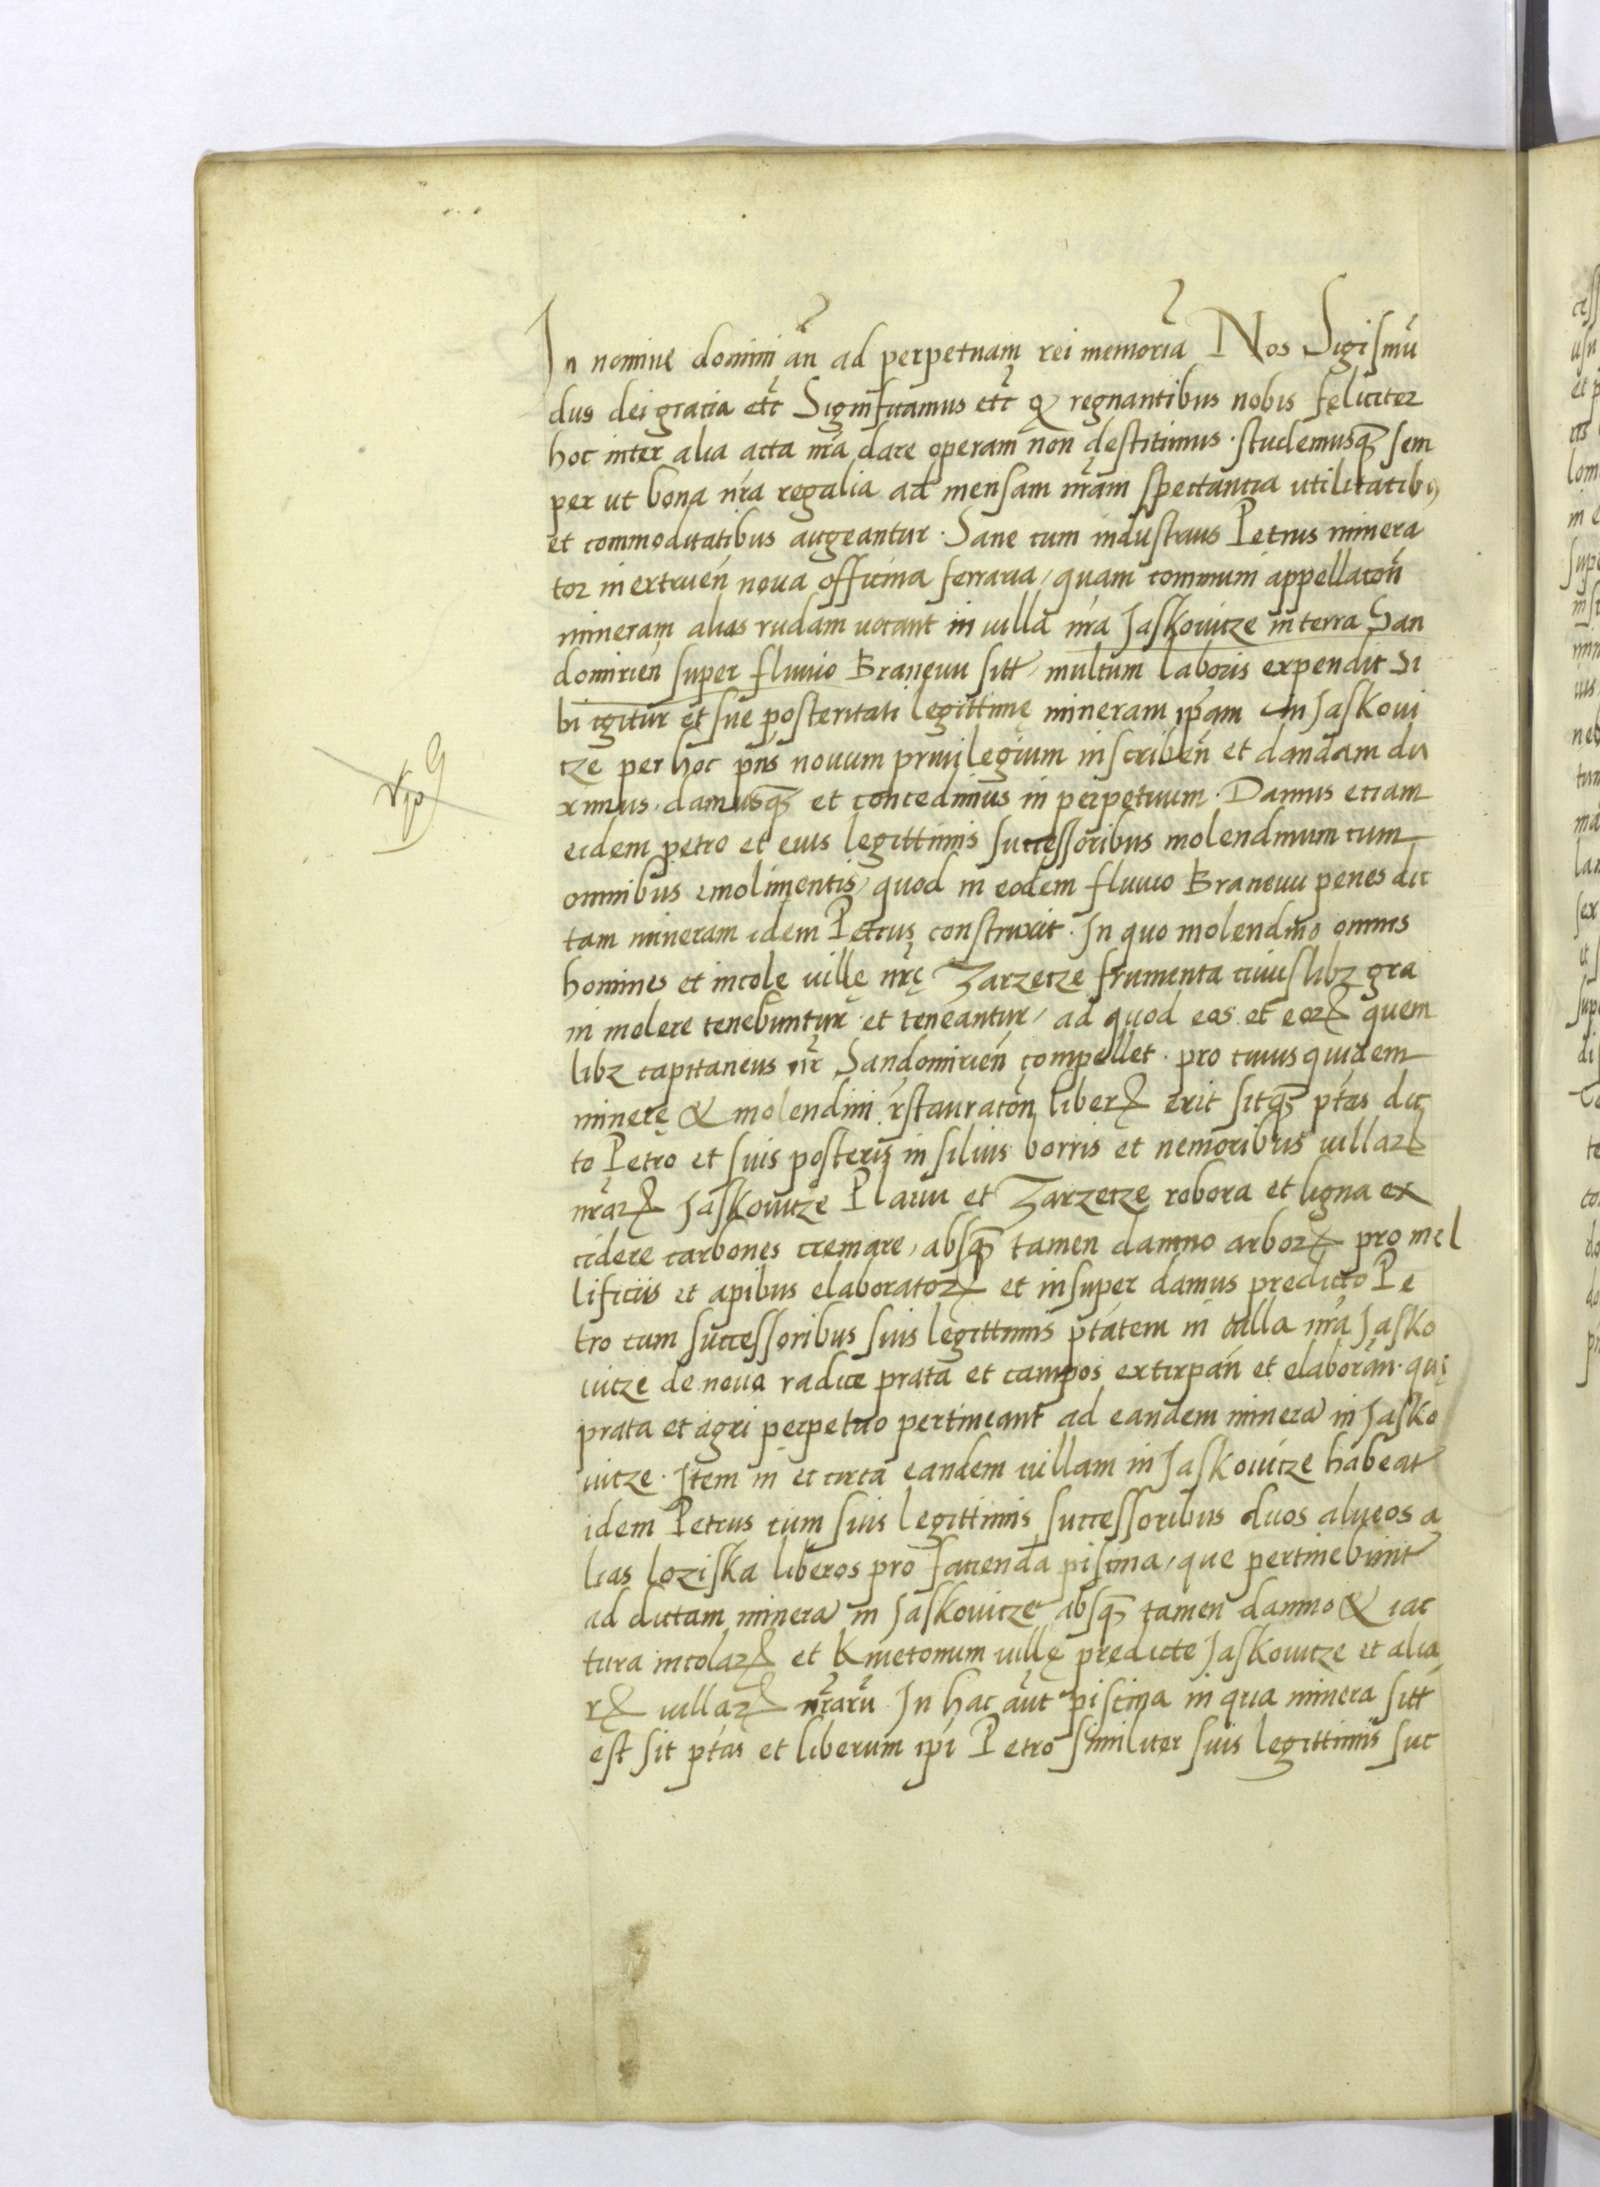 In nomine domini añ ad perpetuam rei memoriã Nos Sigismũ
dus dei gracia etc̃ Significamus etc̃ q̃ regnantibus nobis feliciter
hoc inter alia acta nrã dare operam non destitimus · studemusq̃ sem
per ut bona nrã regalia ad mensam nrãm spectantia utilitatibꝰ
et commoditatibus augeantur · Sane cum industrius Petrus minera
tor in extrueñ noua officina ferraria, quam communi appellacoñ
mineram alias rudam uocant in uilla nrã Jaskouicze in terra San
domirieñ super fluuio Braneuu sitt, multum laboris expendit Si
bi igitur et sue posteritati legittime mineram ipãm in Jaskoui
cze per hoc pñs nouum priuilegium inscribeñ et dandam du
ximus, damusq̃ et concedimus in perpetuum · Damus etiam
eidem petro et eius legittimis successoribus molendinum cum
omnibus emolimentis, quod in eodem fluuio Braneuu penes dic
tam mineram idem Petrus construxit · In quo molendino omnes
homines et incolę uillę nrę̃ Zarzecze frumenta cuiuslibꝫ gra
ni molere tenebuntur et teneantur, ad quod eos et eoꝝ quem
libꝫ capitaneus nr̃ Sandomirieñ compellet · pro cuius quidem
minerę & molendini rẽstauracoñ liberꝝ erit sitq̃ ptãs dic
to Petro et suis posteris in siluis borris et nemoribus uillaꝝ
nrãꝝ Jaskouicze Plauu et Zarzecze robora et ligna ex
cidere carbones cremare, absq̃ tamen damno arboꝝ pro mel
lificiis et apibus elaboratoꝝ et insuper damus predicto Pe
tro cum successoribus suis legittimis ptãtem in uilla nrã Jasko
uicze de noua radice prata et campos extirpañ et elaborañ · quę
prata et agri perpetuo pertineant ad eandem minerã in Jasko
uicze · Item in et circa eandem uillam in Jaskouicze habeat
idem Petrus cum suis legittimis successoribus duos alueos a
lias loziska liberos pro facienda piscina, que pertinebunt
ad dictam minerã in Jaskouicze absq̃ tamen damno & iac
tura incolaꝝ et Kmetonum uillę predicte Jaskouicze et alia
ꝝ uillaꝝ nrãrũ In hac aũt piscina in qua minera sitt
est sit ptãs et liberum ipĩ Petro similiter suis legittimis suc